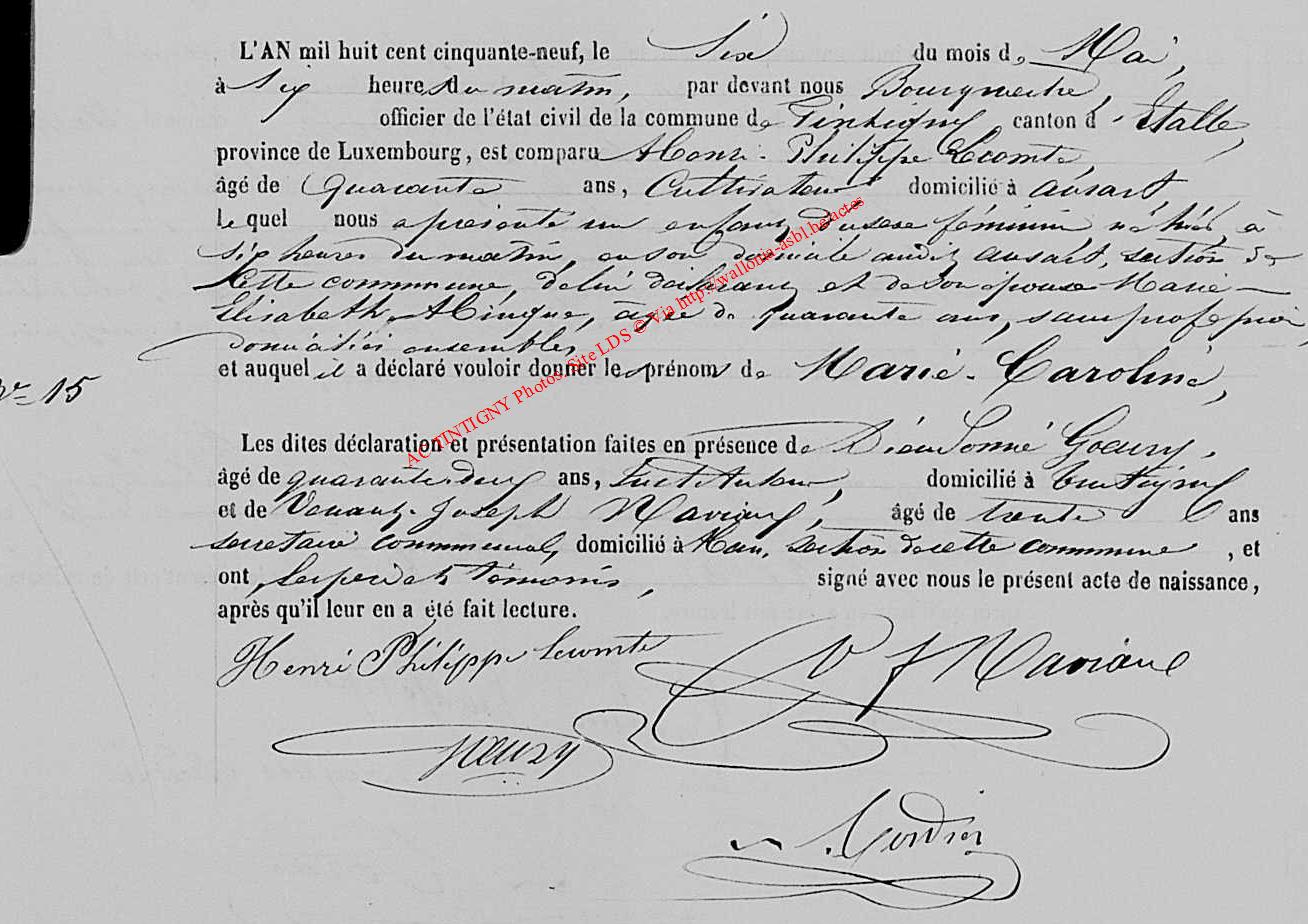 L'AN mil huit cent cinquante-neuf, le Six du mois de Mai,
à dix heures du matin, par devant nous Bourgmestre,
officier de l'état civil de la commune de Tintigny canton d'Etalle,
province de Luxembourg, est comparu Henri-Philippe Lecomte,
âgé de Quarante ans, Cultivateur domicilié à ansart,
lequel nous a présenté un enfant du sexe féminin né hier, à
six heures du matin, en son domicile audit ansart, section de
cette commune, de lui déclarant et de son épouse Marie-
Elisabeth Hinque, âgée de quarante ans, sans profession,
domiciliés ensembles,
et auquel il a déclaré vouloir donner les prénoms de Marie-Caroline,
15
Les dites déclaration et présentation faites en présence de Dieudonné Goeury,
âgé de quarante-deux ans, Instituteur, domicilié à Tintigny
et de Venant-Joseph Maviane, âgé de trente ans
secrétaire communal, domicilié à Han, section de cette commune, et
ont, les père et témoins, signé avec nous le présent acte de naissance,
après qu'il leur en a été fait lecture.
Henri Philippe Lecomte V J Maviane
Goeury
AC TINTIGNY Photos. Site LDS © Via http://wallonia-asbl.be/actes